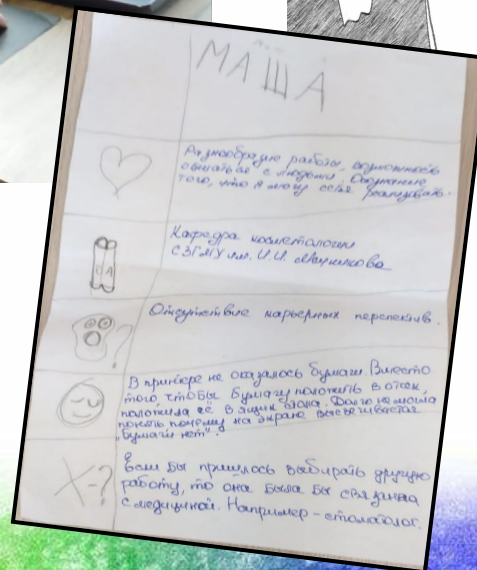 МАША
Разнообразие работы, возможность
общаться с людьми. Осознание
того, что я могу себя реализовать.
Кафедра косметологии
СЗГМУ им. И.И. Мечникова
Отсутствие карьерных перспектив.
?
В принтере не оказалось бумаги. Вместо
того, чтобы бумагу положить в отсек,
положила её в ящик стола. Долго не могла
понять почему на экране высвечивается
"бумаги нет".
Х-?
Если бы пришлось выбирать другую
работу, то она была бы связанна
с медициной. Например - стоматолог.